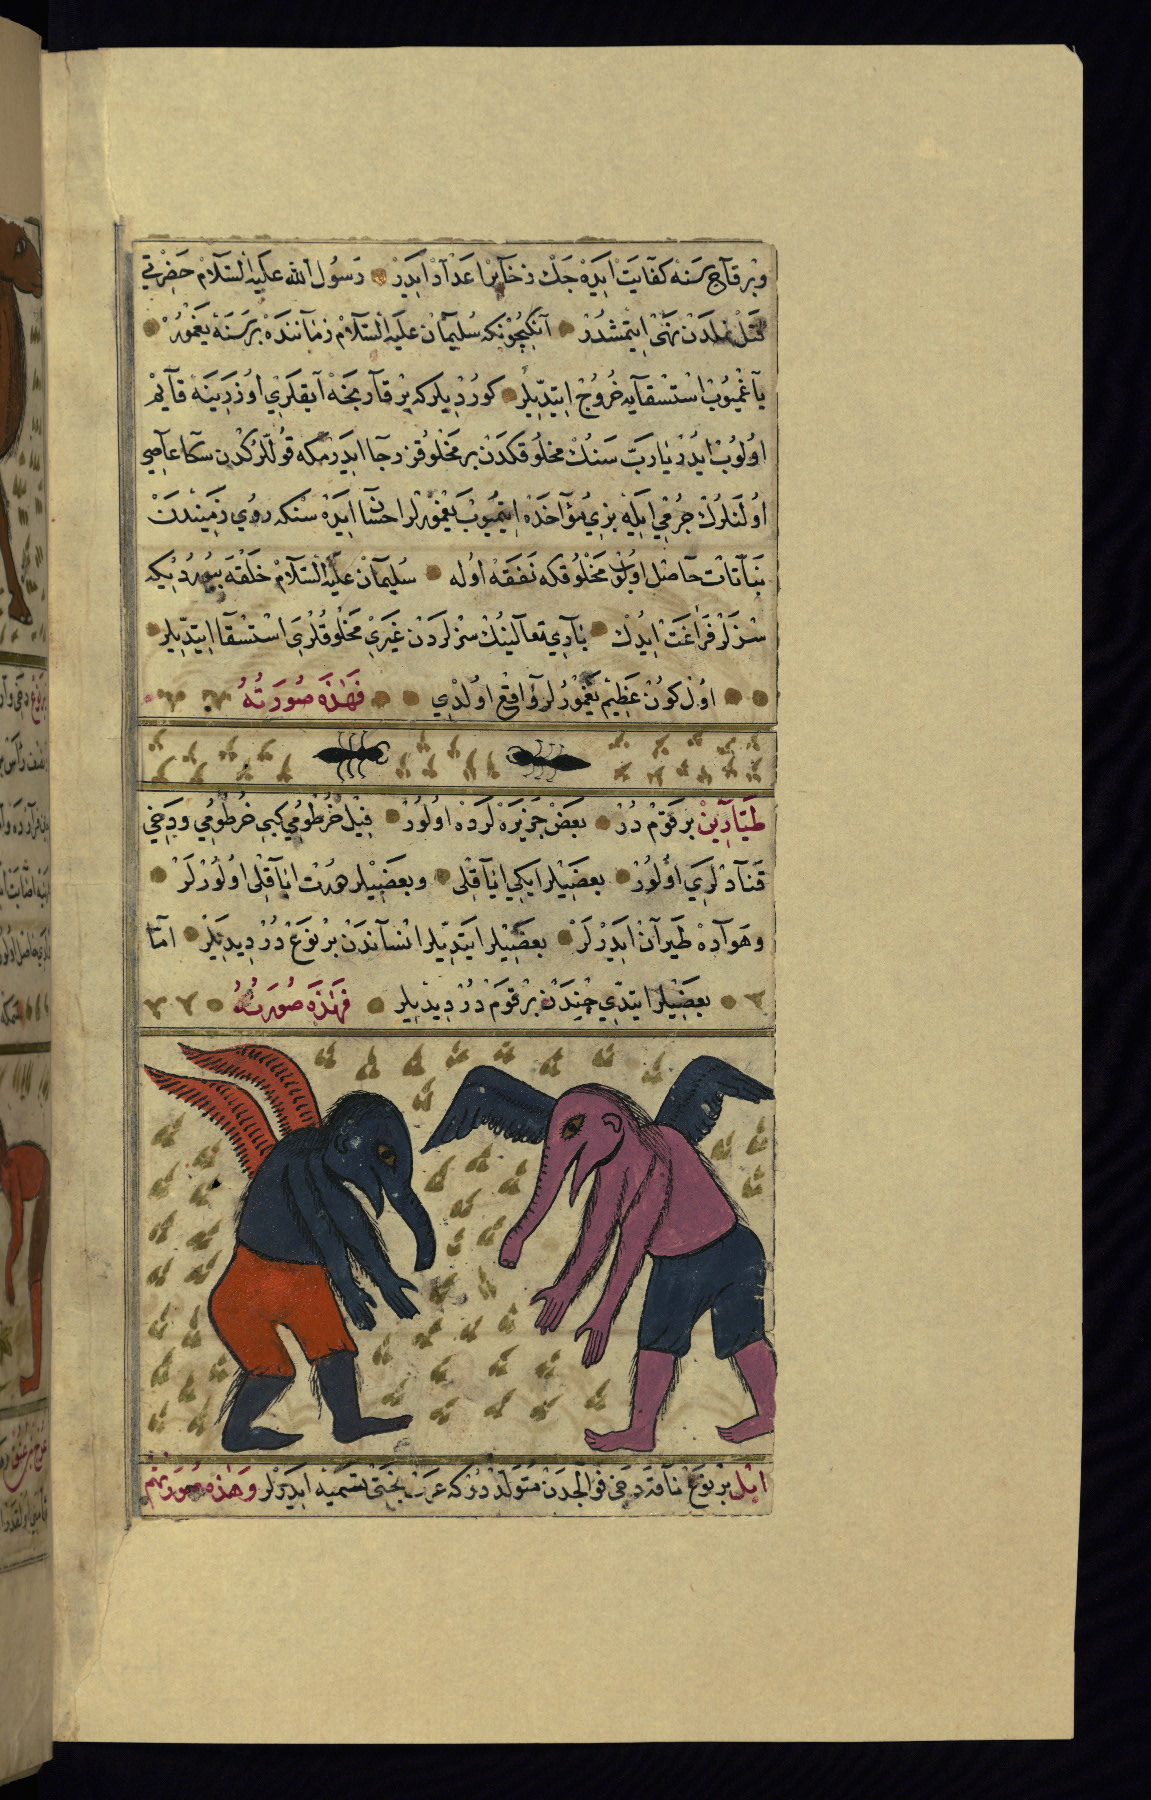 وبر قاچ سنه كفايت ايده جك ذخآير اعداد ايدر رسول الله عليه السلام حضرتي
قتل نملدن نهى ايتمشدر آنكيچونكه سليمان عليه السلام زماننده بر سنه يغمور
ياغميوب استسقايه خروج ايتديلر كورديلركه بر قارنجه آيقلري اوزرينه قآيم
اولوب ايدر يا رب سنك مخلوقكدن بر مخلوقز رجا ايدرمكه قوللركدن سكا عاصي
اولنلرك جرمي ايله بزي مؤاخذه ايتميوب يغمورلر احسان ايده سنكه روي زميندن
نباتات حاصل اولوب مخلوقكه نفقه اوله سليمان عليه السلام خلقه بيورديكه
سزلر فراغت ايدك باري تعالينك سزلردن غيري مخلوقلري استسقا ايتديلر
اول كون عظيم يغمورلر واقع اولدي فهذه صورته
طيارين بر قوم در بعض جزيره لرده اولور فيل خرطومي كبي خرطومي ودخي
قنادلري اولور بعضيلر ايكي اياقلى وبعضيلر درت اياقلى اولورلر
وهواده طيران ايدرلر بعضيلر ايتديلر انساندن بر نوع در ديديلر اما
بعضيلر ايتدي جندن بر قوم در ديديلر فهذه صورته
ابل بر نوع ناقه دخي فوالجدن متولد دركه عرب بختى تسميه ايدرلر وهذه صورتهم